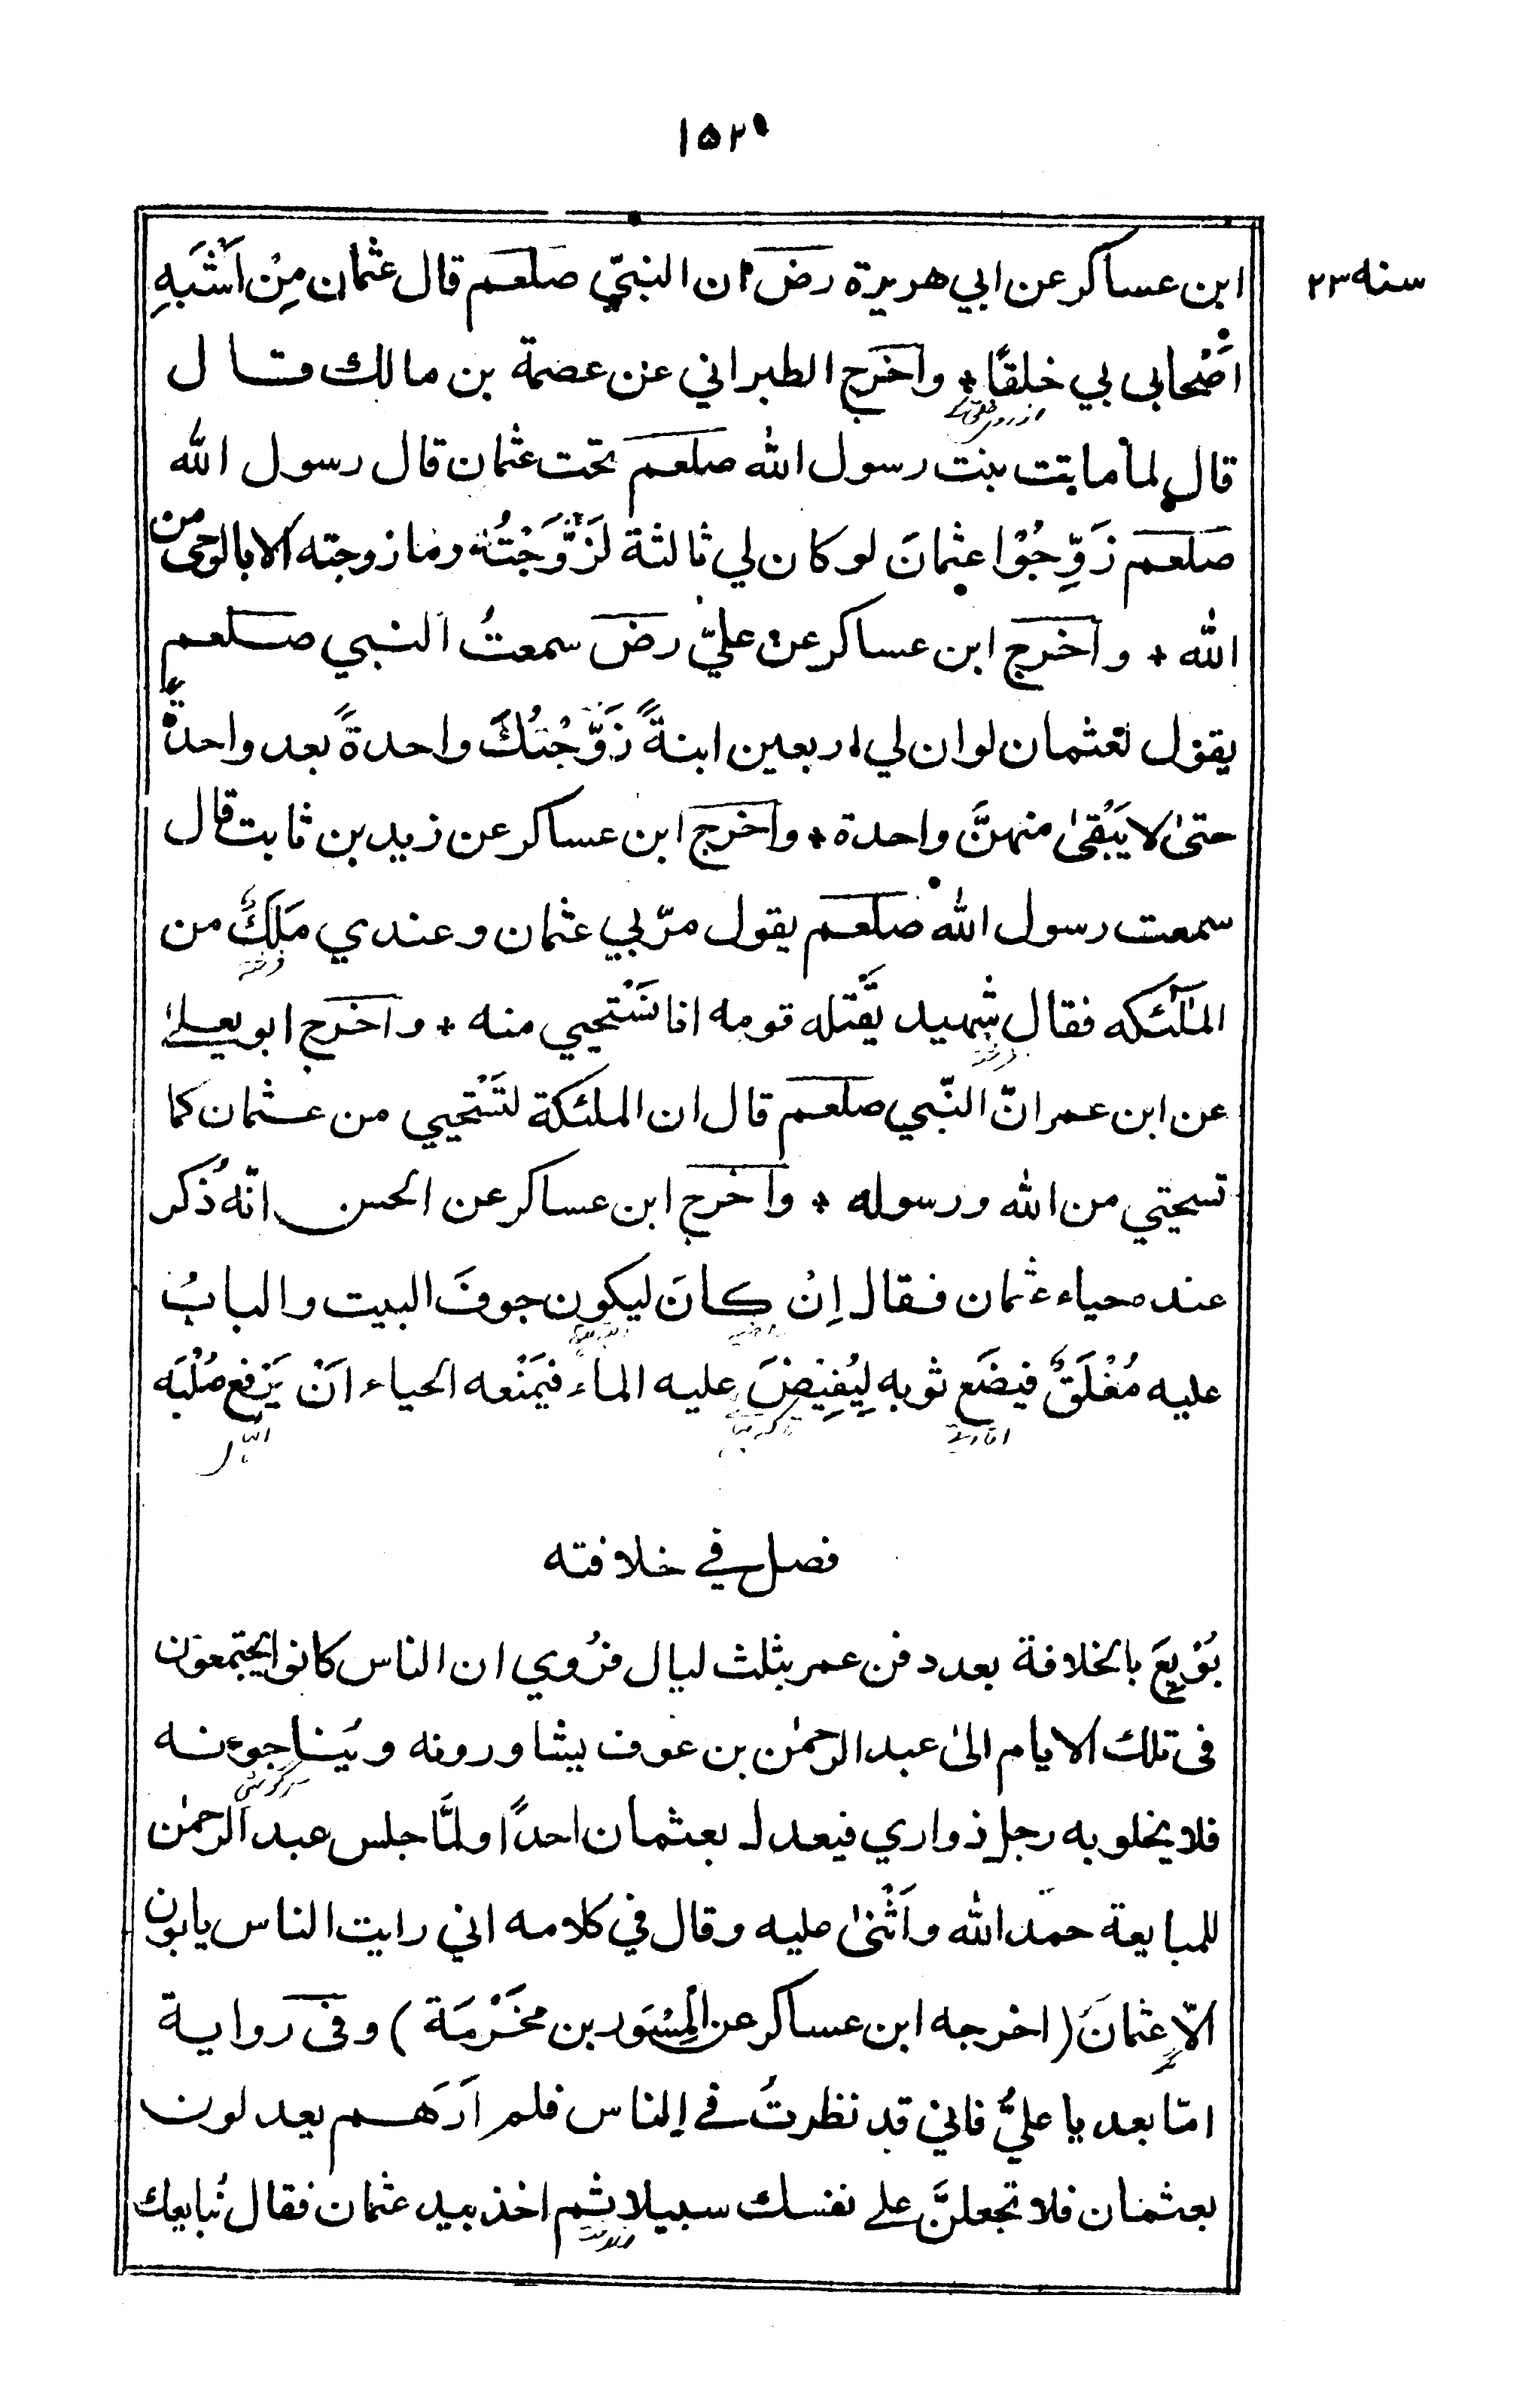 ۱۵۲
سنه ۲۳
ابن عساكر عن ابي هريرة رضؔ ان النبيّ صلعم قال عثمان مِنْ اَشْبَهِ
اَصْحابى بي خلقًا * واخرج الطبراني عن عصمة بن مالك قال
قال لما ماتت بنت رسول الله صلعم تحت عثمان قال رسول الله
صلعم زَوِّجُوْا عثمانَ لو كان لي ثالثة لَزَوَّجْتُهُ وما زوجته الا بالوحى من
الله * واخرج ابن عساكر عن عليّ رضؔ سمعتُ النبي صلعم
يقول لعثمان لو ان لي اربعين ابنةً زَوَّجْتُكَ واحدةً بعد واحدةً
حتىٰ لا يَبْقىٰ منهنَّ واحدة * واخرج ابن عساكر عن زيد بن ثابت قال
سمعت رسول الله صلعم يقول مرّ بي عثمان وعندي مَلَكٌ من
الملٰئكه فقال شهيد يَّقْتله قومه انا نَسْتَحيي منه * واخرج ابو يعلىٰ
عن ابن عمر انّ النّبي صلعم قال ان الملئكة لتَسْتَحيي من عثمان كما
تستحيي من الله ورسوله * واخرج ابن عساكر عن الحسن انّه ذُكر
عنده حياء عثمان فقال اِنْ كانَ ليكون جوفَ البيت والبابُ
عليه مُغْلَقٌ فيضَع ثوبه لِيُفِيْضَ عليه الماء فيَمْنعه الحياء اَنْ يَرْفع صُلْبَه
فصل في خلافته
بُوْيِعَ بالخلافة بعد دفن عمر بثلث ليال فرُوي ان الناس كانوا يجتمعون
فى تلك الايام الىٰ عبد الرحمٰن بن عوف يشاورونه ويُناجونه
فلا يخلو به رجل ذو اري فيعدل بعثمان احدًا ولمَّا جلس عبد الرحمٰن
للمبايعة حمد الله واَثْنىٰ عليه وقال في كلامه اني رايت الناس يابون
الّا عثمانَ (اخرجه ابن عساكر عن المِسْوَر بن مَخْرَمَة) وفى رواية
امّا بعد يا عليُّ فاني قد نظرتُ في الناس فلم اَرَهم يعدلون
بعثمان فلا تجعلنَّ على نفسك سبيلا ثم اخذ بيد عثمان فقال نُبايعك